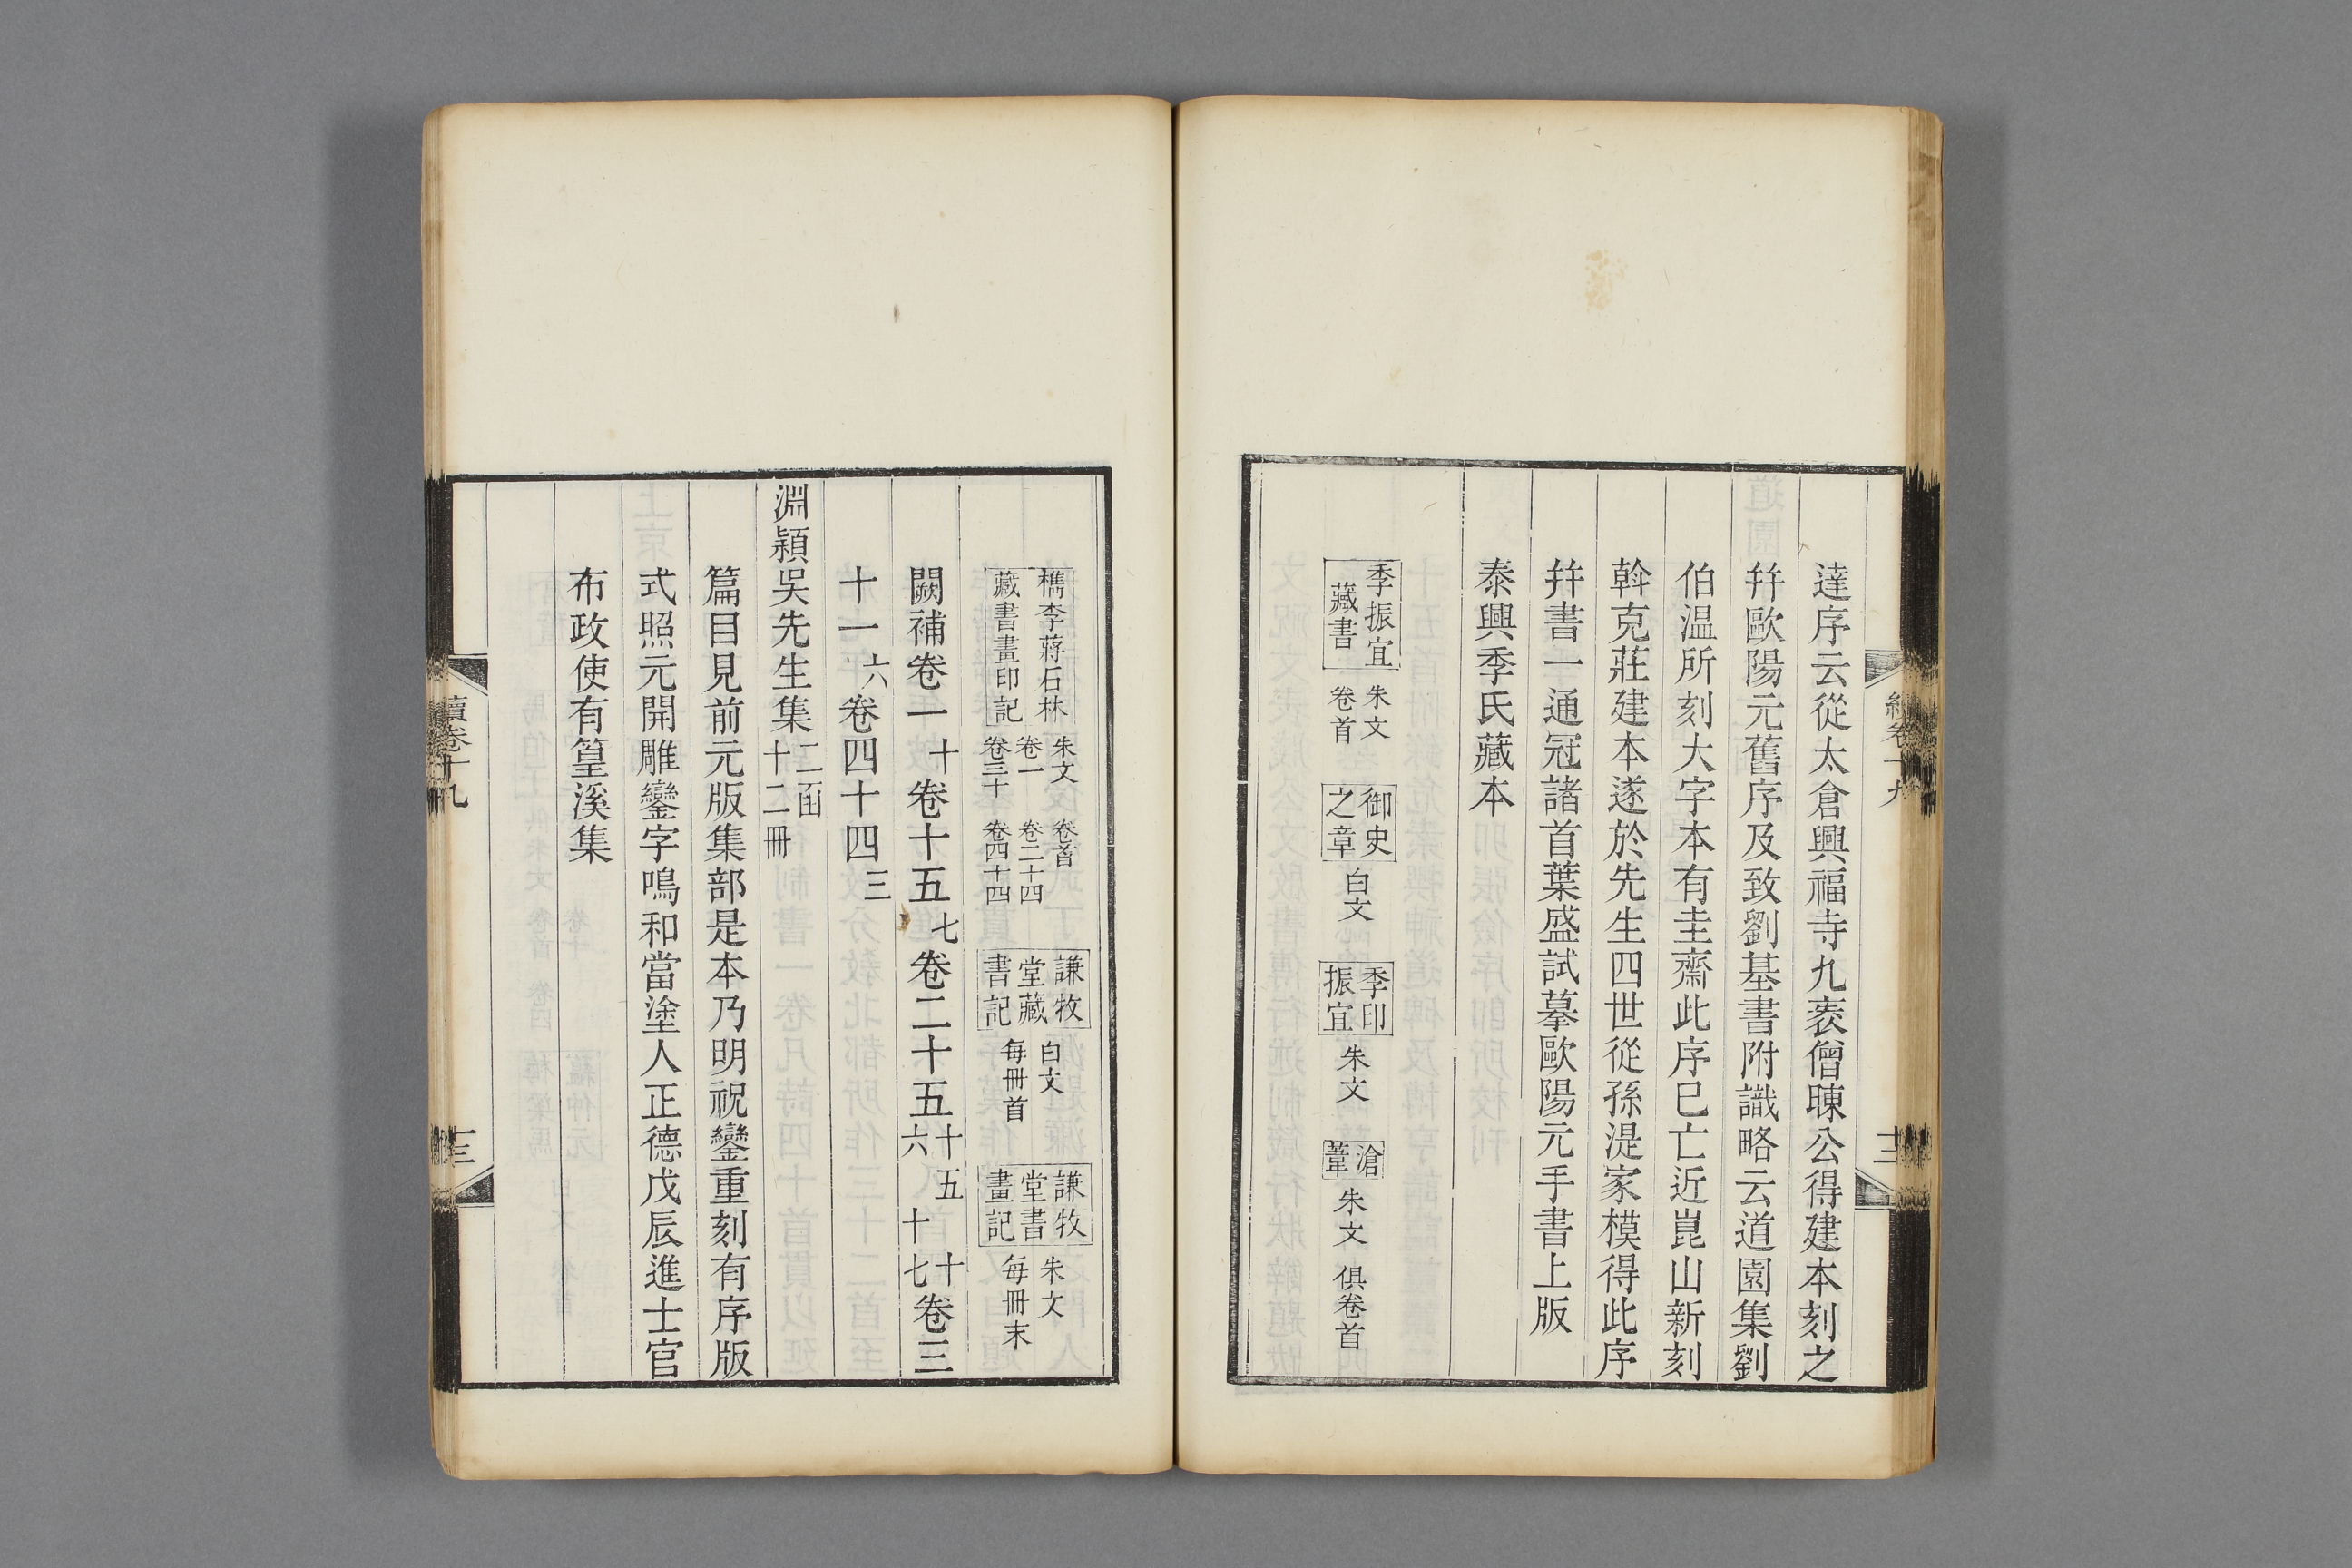 達序云從太倉興福寺九裘僧暕公得建本刻之
幷歐陽元舊序及致劉基書附識略云道園集劉
伯温所刻大字本有圭齋此序已亡近崑山新刻
斡克莊建本遂於先生四世從孫湜家模得此序
幷書一通冠諸首葉盛試摹歐陽元手書上版
泰興季氏藏本
季振宜藏書 朱文 卷首 御史之章 白文 季印振宜 朱文 滄葦 朱文 俱卷首
檇李蔣石林藏書畫印記 朱文 卷首 卷一 卷二十四 卷三十 卷四十四 謙牧堂藏書記 白文 每冊首 謙牧堂書畫記 朱文 每冊末
闕補卷一 十 卷十五 七 卷二十五 十五 十六 十七 卷三
十一 六 卷四十四 三
淵穎吳先生集 二函 十二冊
篇目見前元版集部是本乃明祝鑾重刻有序版
式照元開雕鑾字鳴和當塗人正德戊辰進士官
布政使有篁溪集
續卷十九
十三